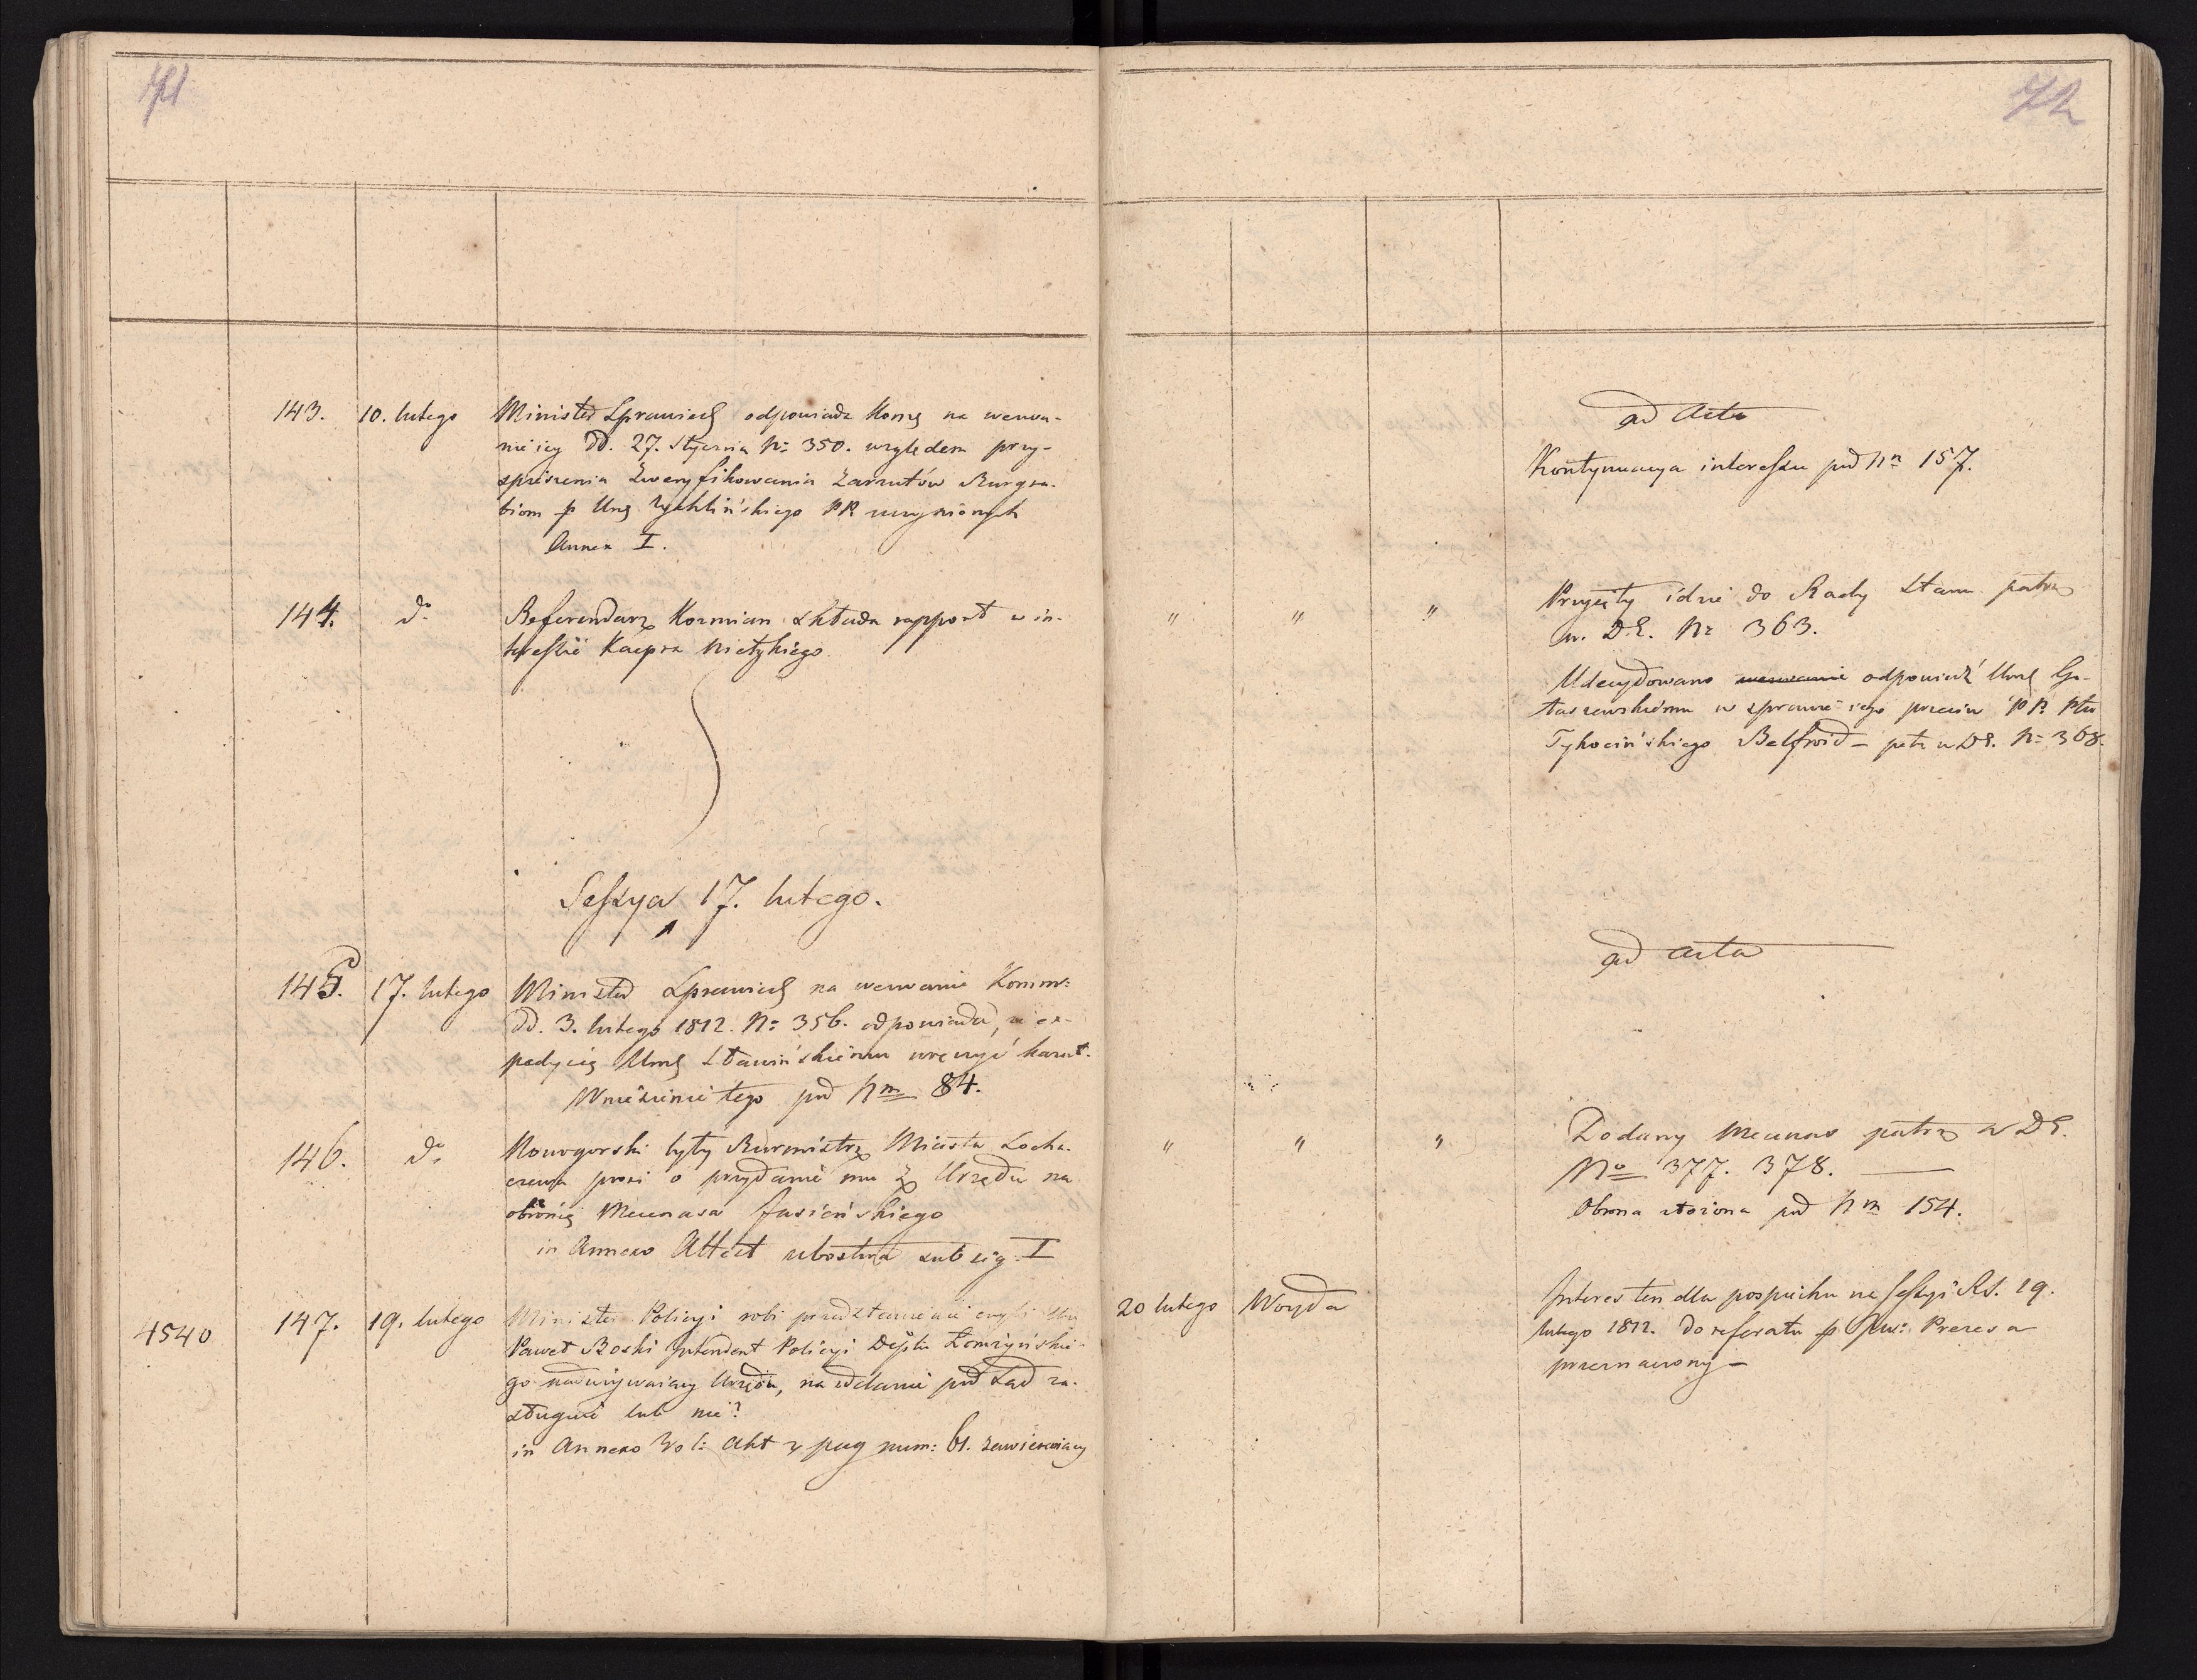 71
143. 10. lutego Minister Sprawiedl odpowiada Komss na wezwa-
nie iey dd. 27. Stycznia Nr 350. względem przy-
spieszenia zweryfikowania zarzutów Burgra-
biom p Urng Rychlińskiego PR uczynionych
Annex I.
144. do Referendarz Kozmian składa rapport w in-
teressie Kacpra Nietykiego
Sessya 17. lutego.
145. 17. lutego Minister Sprawiedl na wezwanie Komm:
dd. 3. lutego 1812. Nr 356. odpowiada, że ex-
pedycię Urng Sławińskiemu wręczyć kazał.
Wniesienie tego pod Nm 84.
146. do Nowogorski były Burmistrz Miasta Socha-
czewa prosi o przydanie mu z Urzędu na
obronię Mecenasa Jasieńskiego
in Annexo Attest ubostwa sub sig. I
4540 147. 19. lutego Minister Policyi robi przedstawienie czyli Ur
Paweł Roski Intendent Policyi Deptu Łomżyńskie-
go nadużywaiący Urzędu, na oddanie pod Sąd za-
sługuie lub nie?
in Annexo Vol: Akt z pag num: 61. zawieraiący
72
ad Acta
Kontynuacya interessu pod Nr 157.
" " " Przyięty idzie do Rady Stanu patrz
w. DE. Nr 363.
Udecydowano wezwanie odpowiedź Urng Go-
taszewskiemu w sprawie iego przeciw PR Ptu
Tykocińskiego Belfroid – patr w DE. Nr 368.
ad acta
" " " Dodany Mecenas patrz w DE.
No 377. 378.
Obrona złożona pod Nm 154.
20 lutego Woyda Interes ten dla pospiechu na Sessyi RS. 19.
lutego 1812. do referatu p Prezesa
przeznaczony –